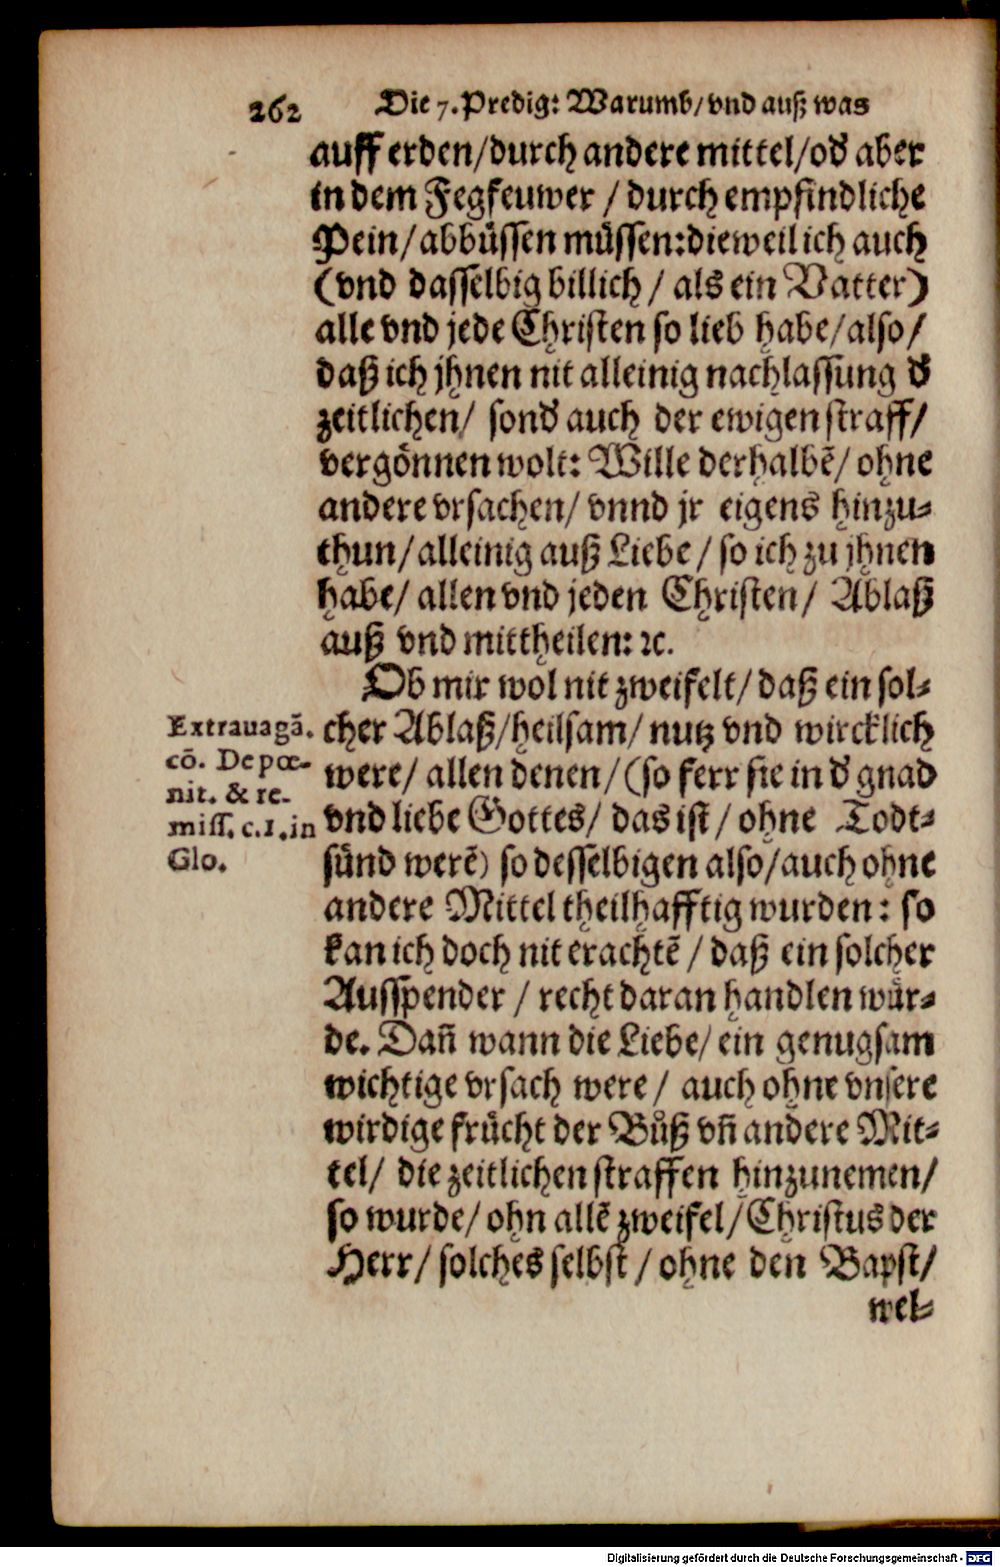 262 Die 7. Predig: Warumb/ vnd auß was
auff erden/durch andere mittel/od' aber
in dem Fegfeuwer / durch empfindliche
Pein/ abbüssen müssen: dieweil ich auch
(vnd dasselbig billich / als ein Vatter)
alle vnd jede Christen so lieb habe/also/
daß ich jhnen nit alleinig nachlassung d'
zeitlichen/ sond' auch der ewigen straff/
vergönnen wolt: Wille derhalbē/ ohne
andere vrsachen/ vnnd jr eigens hinzu-
thun/ alleinig auß Liebe / so ich zu jhnen
habe/ allen vnd jeden Christen/ Ablaß
auß vnd mittheilen: ꝛc.
Ob mir wol nit zweifelt/ daß ein sol-
cher Ablaß/heilsam/ nutz vnd wircklich
were/ allen denen/ (so ferr sie in d' gnad
vnd liebe Gottes/ das ist/ ohne Todt-
sünd werē) so desselbigen also/auch ohne
andere Mittel theilhafftig wurden: so
kan ich doch nit erachtē / daß ein solcher
Ausspender / recht daran handlen wür-
de. Dañ wann die Liebe/ ein genugsam
wichtige vrsach were / auch ohne vnsere
wirdige frücht der Bůß vñ andere Mit-
tel/ die zeitlichen straffen hinzunemen/
so wurde/ ohn allē zweifel/ Christus der
Herr/ solches selbst / ohne den Bapst/
wel-
Extrauagā.
cō. De pœ-
nit. & re-
miss. c.1. in
Glo.
Digitalisierung gefördert durch die Deutsche Forschungsgemeinschaft - DFG